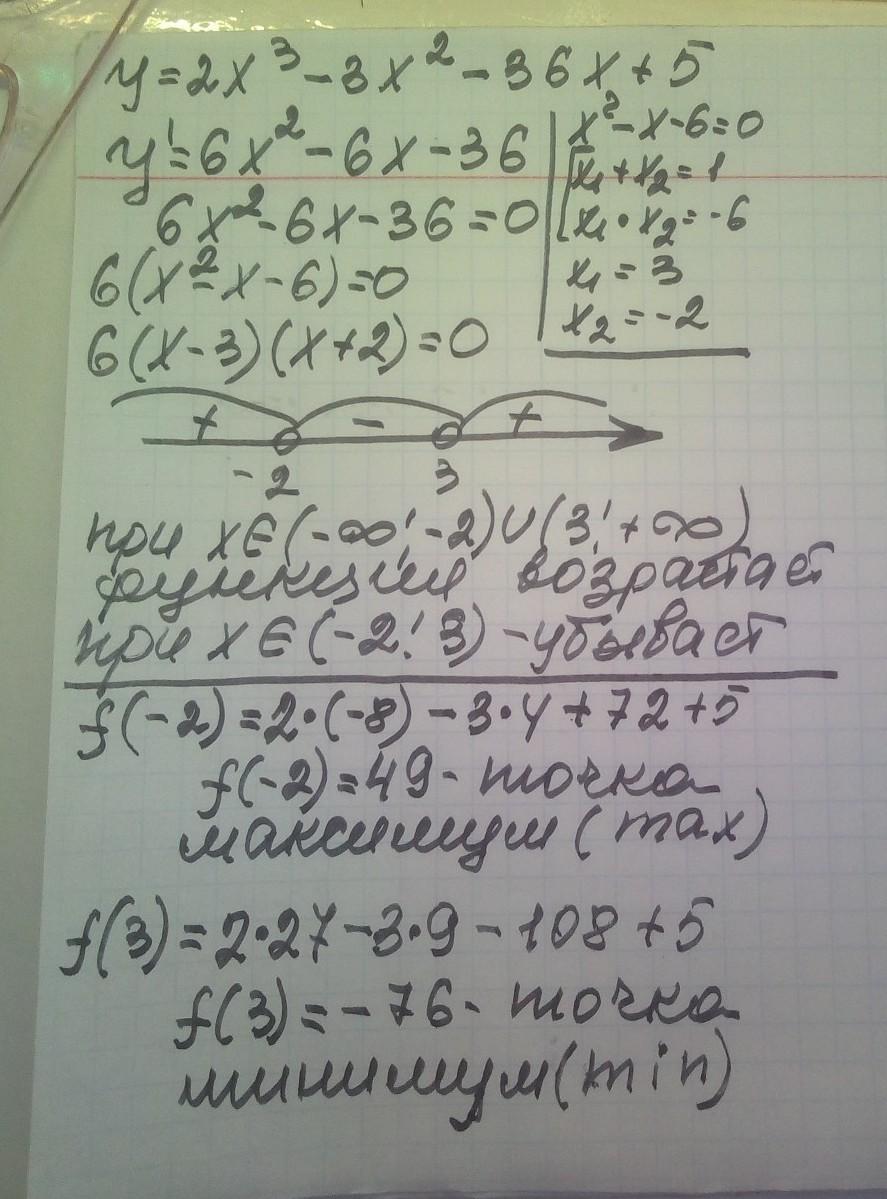 y=2x³-3x²-36x+5
y'=6x²-6x-36
6x²-6x-36=0
6(x²-x-6)=0
6(x-3)(x+2)=0
x²-x-6=0
x₁+x₂=1
x₁·x₂=-6
x₁=3
x₂=-2
+ - +
-2 3
при x∈(-∞; -2)∪(3; +∞)
функция возрастает
при x∈(-2; 3) - убывает
f(-2)=2·(-8)-3·4+72+5
f(-2)=49- точка
максимум (max)
f(3)=2·27-3·9-108+5
f(3)=-76- точка
минимум (min)